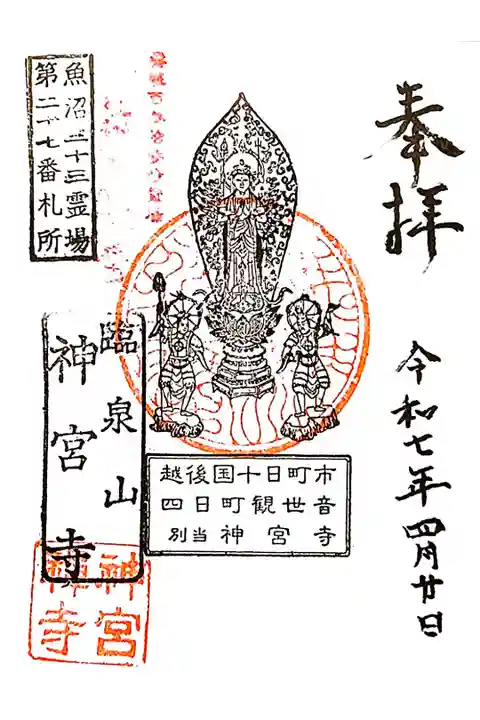 奉拝
令和七年四月廿日
魚沼三十三霊場
第二十七番札所
越後国十日町市
四日町観世音
別当神宮寺
臨泉山
神宮寺
神宮
禅寺